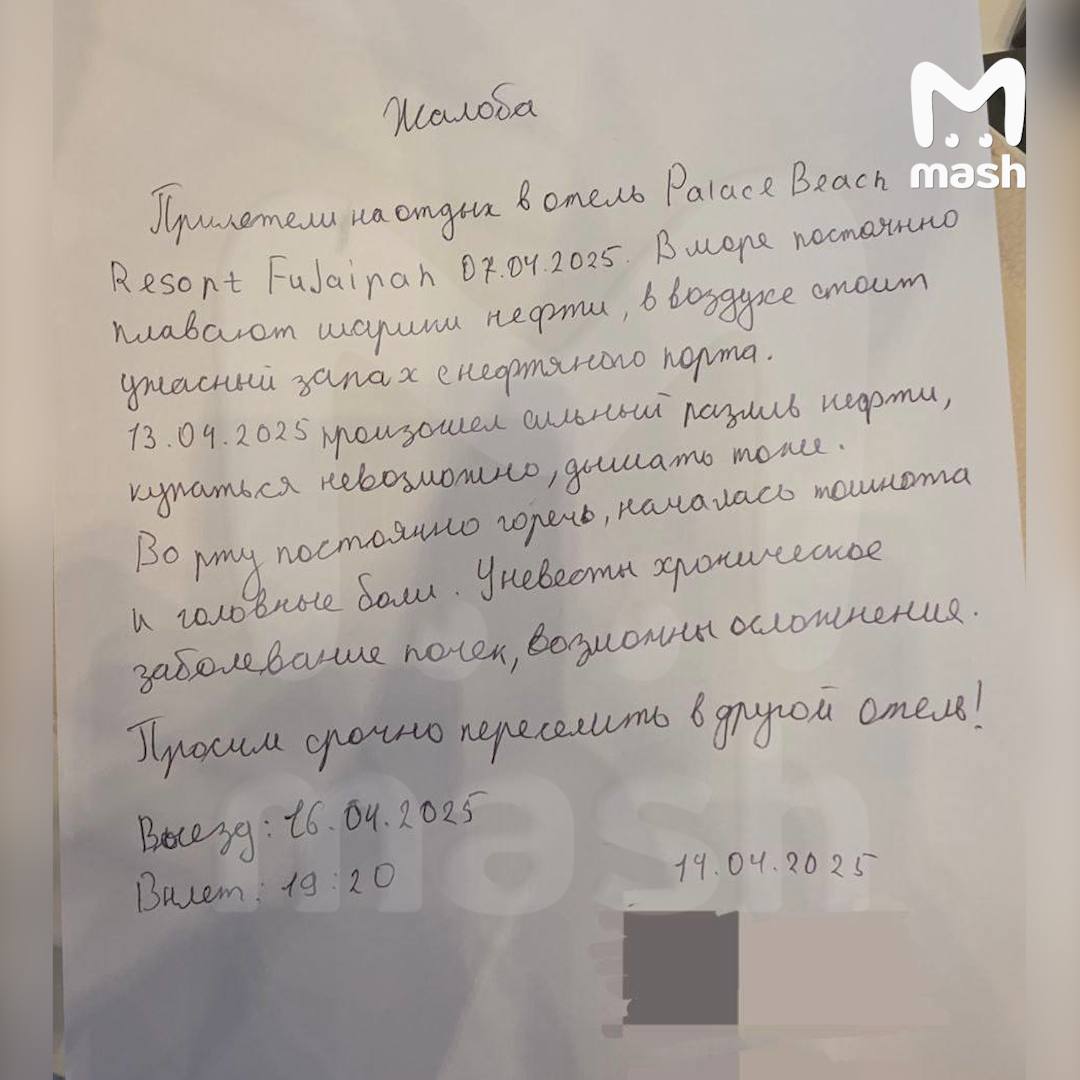 Жалоба
mash
Прилетели на отдых в отель Palace Beach
Resort Fujairah 07.04.2025. В море постоянно
плавают шарики нефти, в воздухе стоит
ужасный запах с нефтяного порта.
13.04.2025 произошел сильный разлив нефти,
купаться невозможно, дышать тоже.
Во рту постоянно горечь, началась тошнота
и головные боли. У невесты хроническое
заболевание почек, возможны осложнения.
Просим срочно переселить в другой отель!
Выезд: 16.04.2025
Вылет: 19:20
14.04.2025
mash